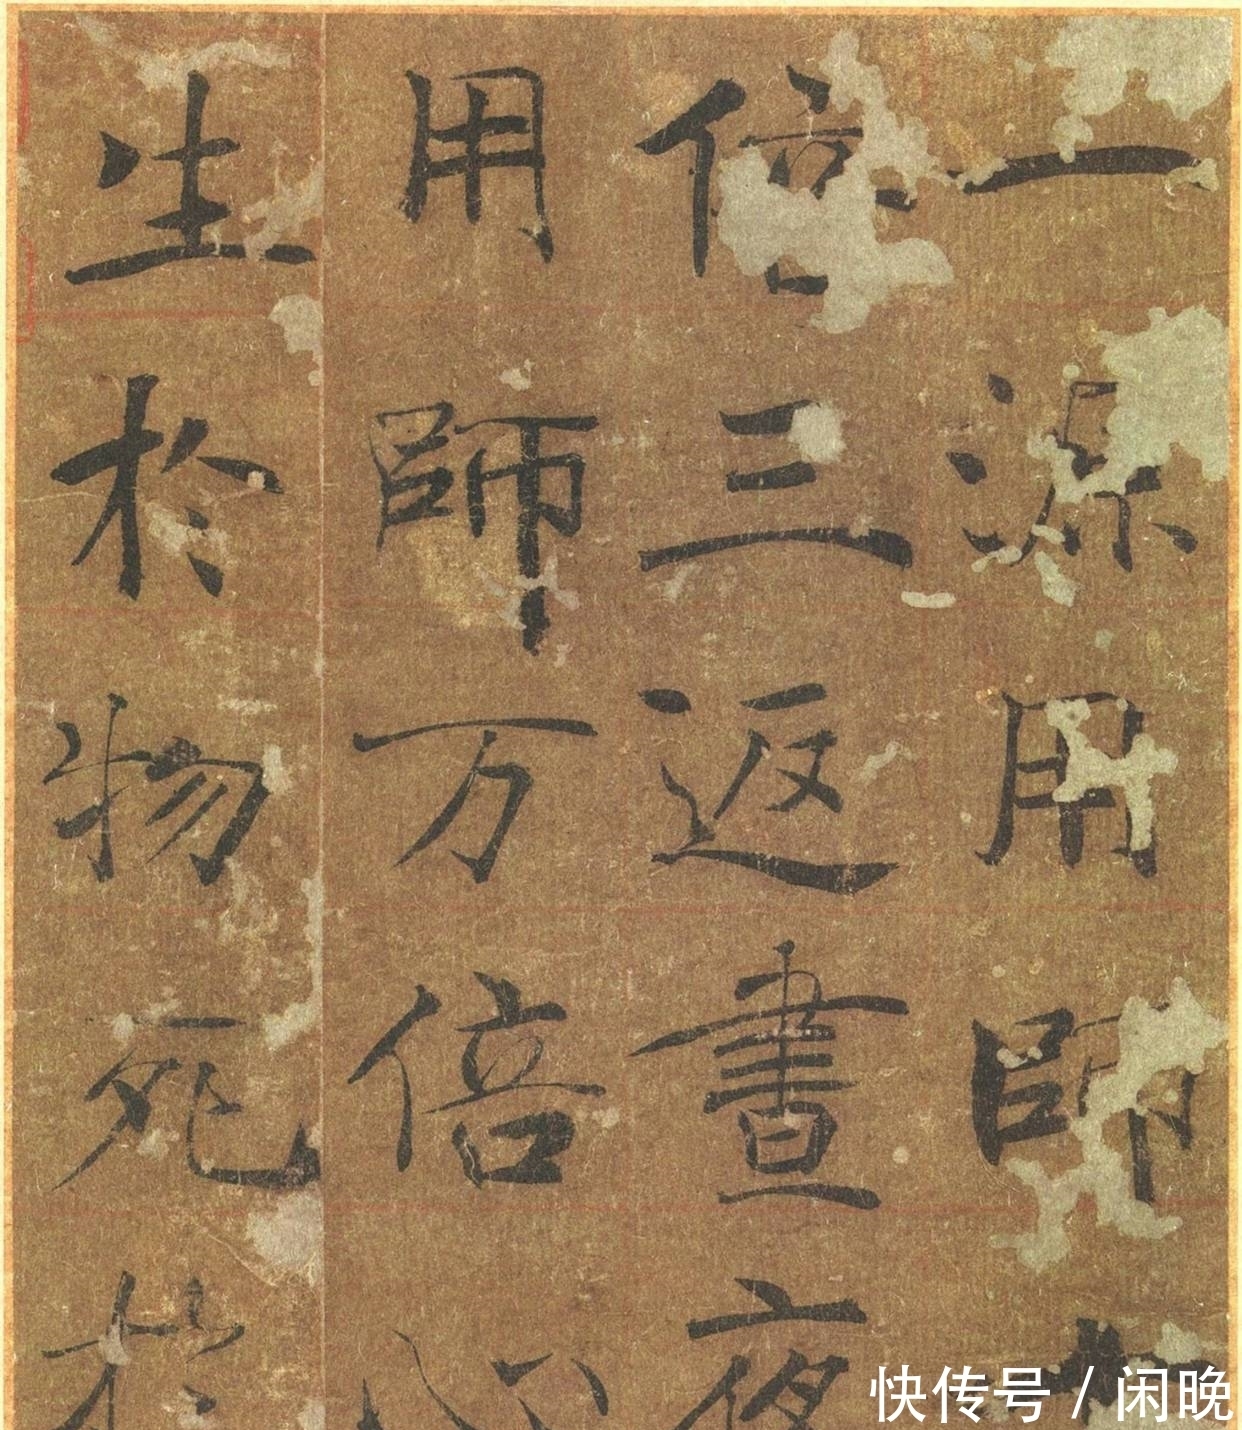 一源用師十
倍三返晝夜
用師万倍心
生於物死於
快传号 / 闲晚